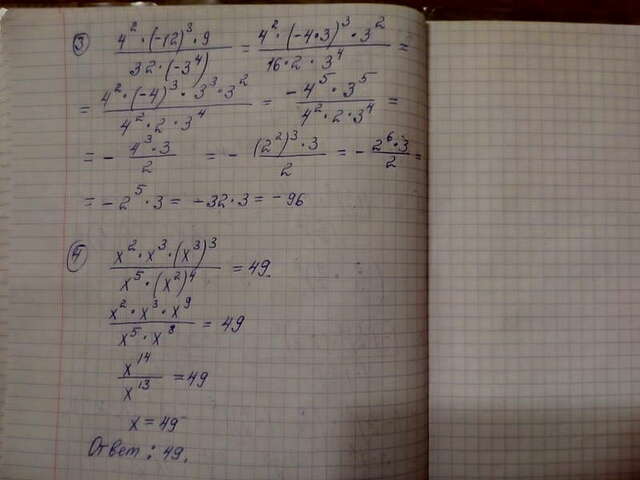 ③ (4² · (-12)³ · 9) / (32 · (-3⁴)) = (4² · (-4·3)³ · 3²) / (16 · 2 · 3⁴) =
= (4² · (-4)³ · 3³ · 3²) / (4² · 2 · 3⁴) = (-4⁵ · 3⁵) / (4² · 2 · 3⁴) =
= - (4³ · 3) / 2 = - ((2²)³ · 3) / 2 = - (2⁶ · 3) / 2 =
= -2⁵ · 3 = -32 · 3 = -96
④ (x² · x³ · (x³)³) / (x⁵ · (x²)⁴) = 49
(x² · x³ · x⁹) / (x⁵ · x⁸) = 49
x¹⁴ / x¹³ = 49
x = 49
Ответ: 49.